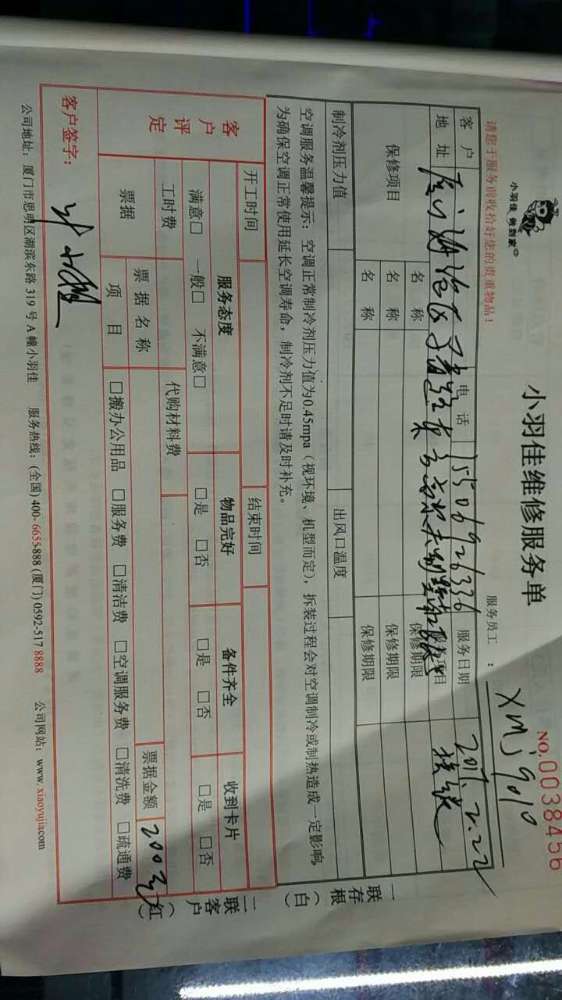 小羽佳 做到家
小羽佳维修服务单
NO.0038456
请您于服务前收拾好您的贵重物品！
服务员工：
XMJ9010
客户
电话
15506926336
服务日期
2017.2.22
地址
厦门海沧区
项目
保修项目
名称
保修期限
名称
保修期限
名称
保修期限
制冷剂压力值
出风口温度
空调服务温馨提示：空调正常制冷剂压力值为0.45mpa（视环境、机型而定），拆装过程会对空调制冷或制热造成一定影响，
为确保空调正常使用延长空调寿命，制冷剂不足时请及时补充。
一联存根（白）
二联客户（红）
开工时间
结束时间
客户评定
服务态度
物品完好
备件齐全
收到卡片
满意□ 一般□ 不满意□
□是 □否
□是 □否
□是 □否
工时费
代购材料费
票据
票据名称
票据金额
200元
项目
□搬办公用品 □服务费 □清洁费 □空调服务费 □清洗费 □疏通费
客户签字：
公司地址：厦门市思明区湖滨东路 319 号 A 幢小羽佳 服务热线：(全国) 400-6655-888 (厦门) 0592-517 8888 公司网站：www.xiaoyujia.com